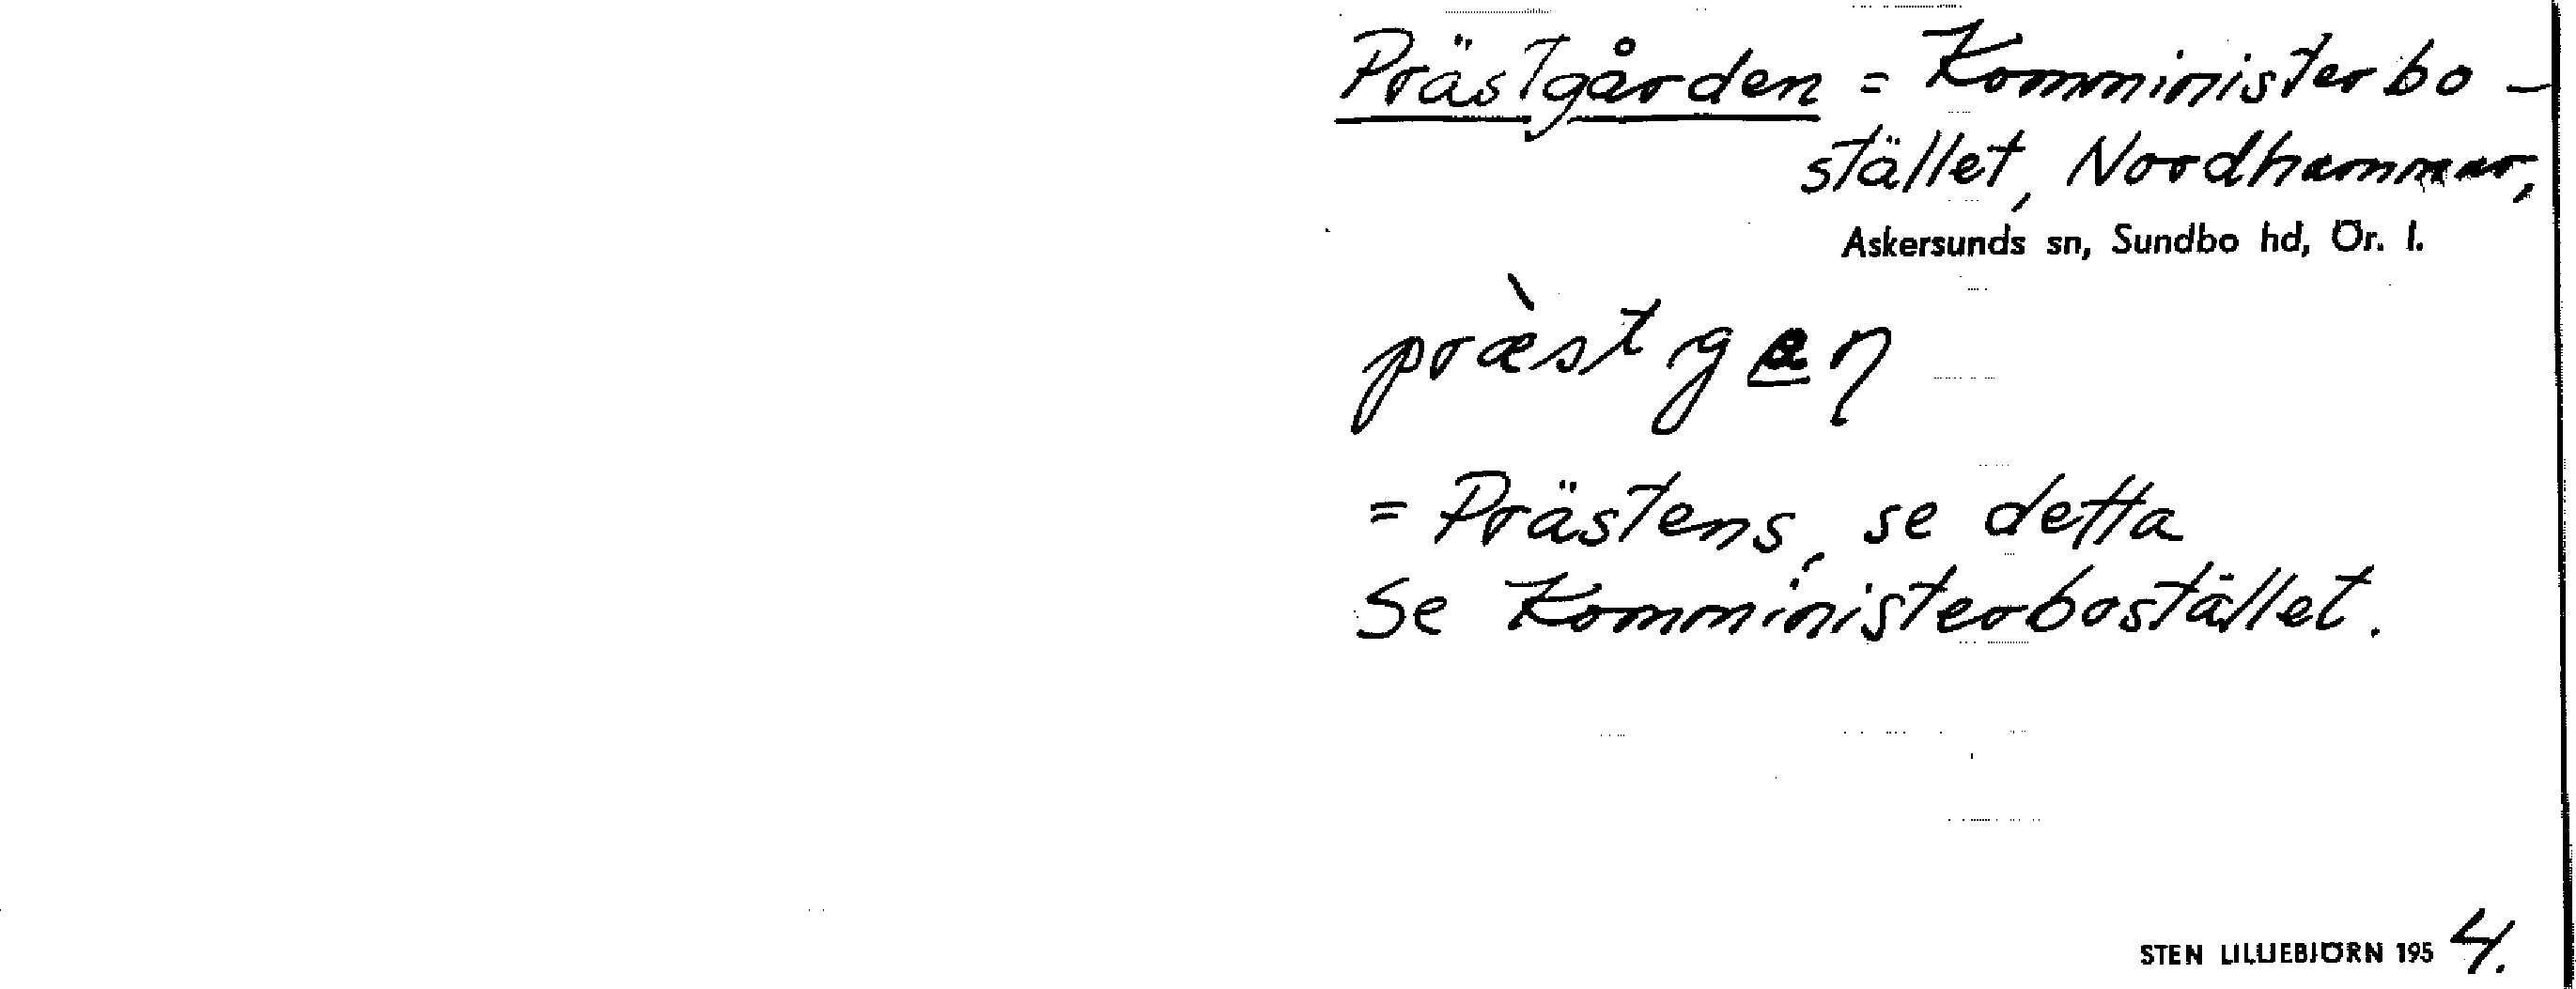 Prästgården = Komministerbo-
stället, Nordhammar,
Askersunds sn, Sundbo hd, Ör. l.
= Prästens, se detta
Se Komministerbostället.
STEN LILLIEBJÖRN 1954.